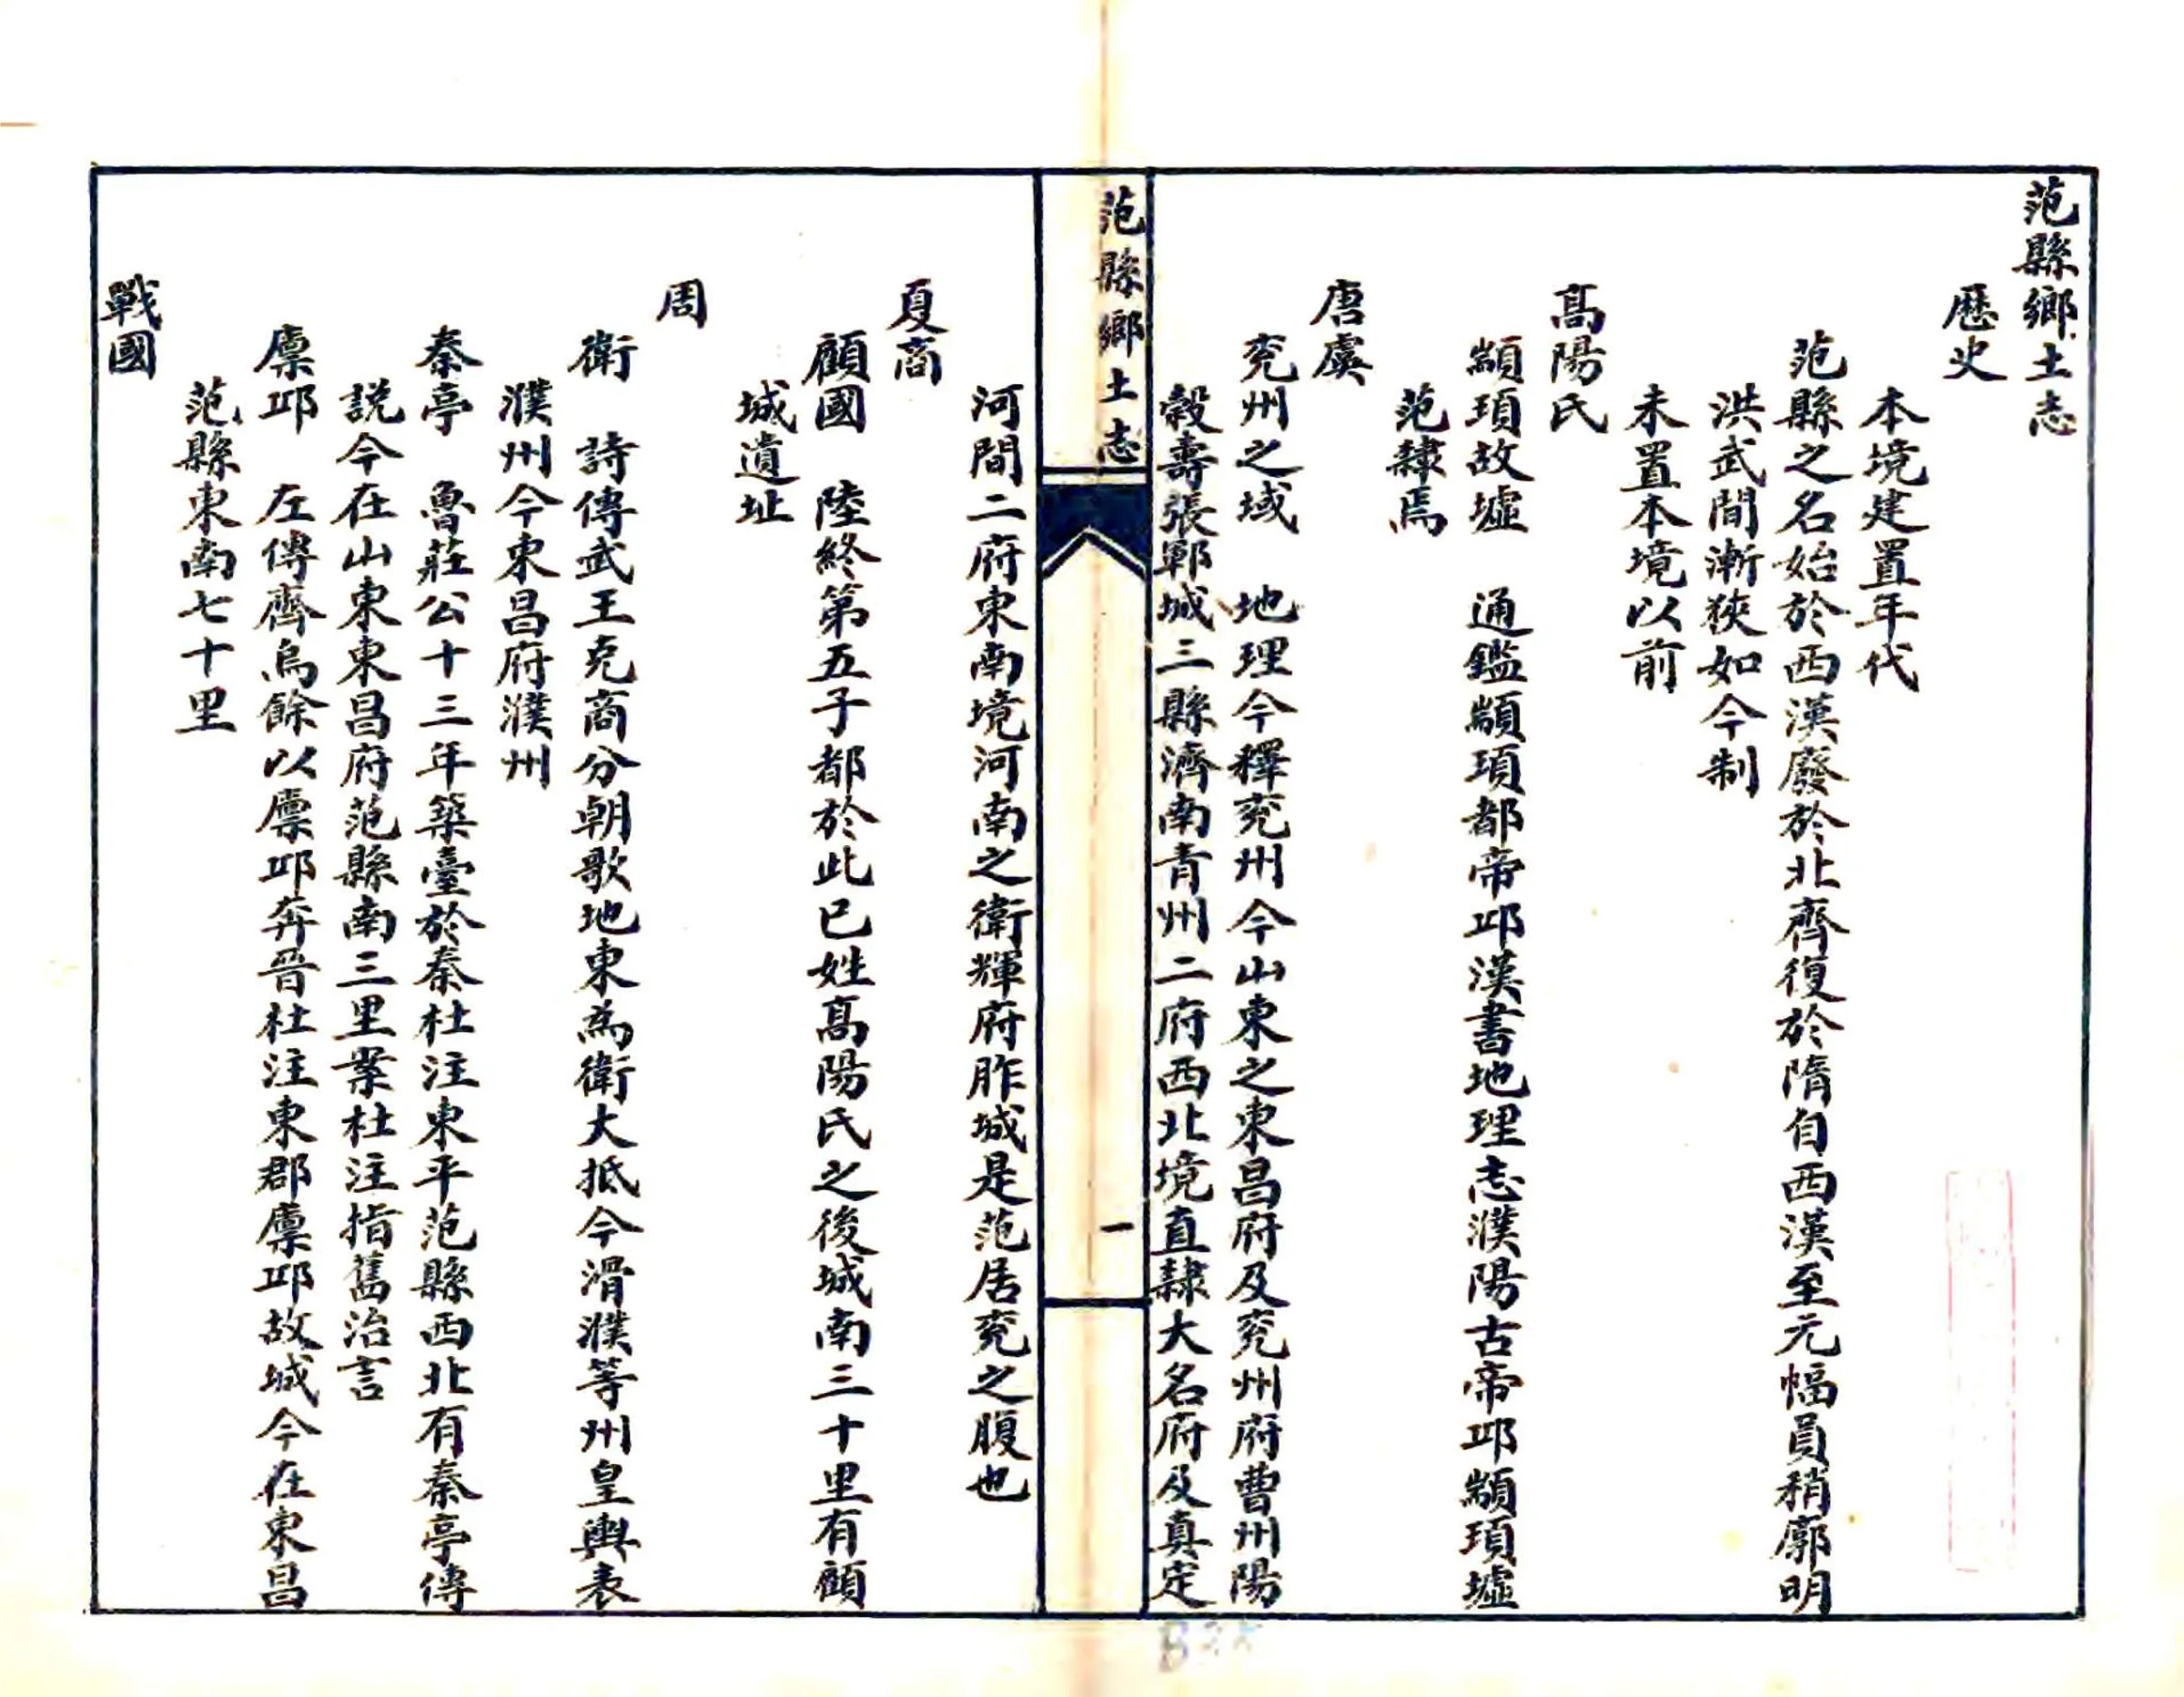 范縣鄉土志
歷史
本境建置年代
范縣之名始於西漢廢於北齊復於隋自西漢至元幅員稍廓明
洪武間漸狹如今制
未置本境以前
髙陽氏
顓頊故墟　通鑑顓頊都帝邱漢書地理志濮陽古帝邱顓頊墟
范隸焉
唐虞
兖州之域　地理今釋兖州今山東之東昌府及兖州府曹州陽
穀壽張鄆城三縣濟南青州二府西北境直隸大名府及真定
范縣鄉土志
一
河間二府東南境河南之衛輝府胙城是范居兖之腹也
夏商
顧國　陸終第五子都於此已姓髙陽氏之後城南三十里有顧
城遺址
周
衛　詩傳武王克商分朝歌地東為衛大抵今滑濮等州皇輿表
濮州今東昌府濮州
秦亭　魯莊公十三年築臺於秦杜注東平范縣西北有秦亭傳
説今在山東東昌府范縣南三里案杜注指舊治言
廩邱　左傳齊烏餘以廩邱奔晉杜注東郡廩邱故城今在東昌
范縣東南七十里
戰國